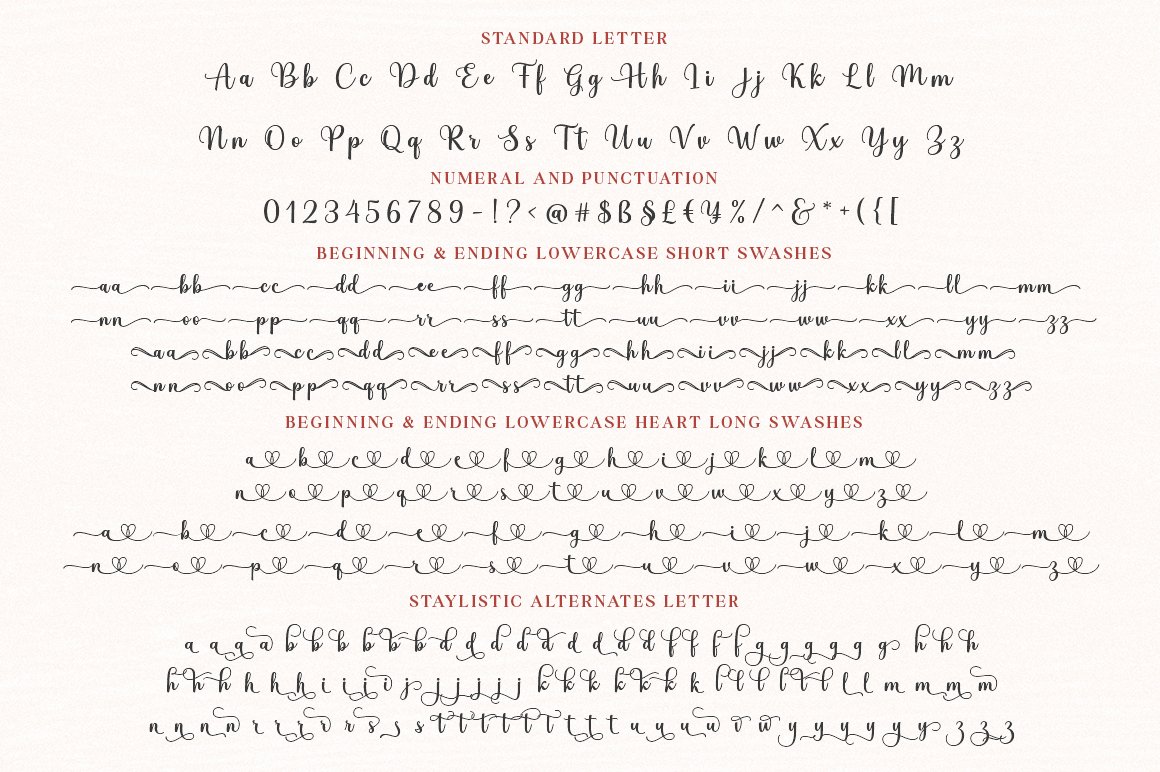 STANDARD LETTER
Aa Bb Cc Dd Ee Ff Gg Hh Ii Jj Kk Ll Mm
Nn Oo Pp Qq Rr Ss Tt Uu Vv Ww Xx Yy Zz
NUMERAL AND PUNCTUATION
0123456789-!?<@#$ß§£€¥%/^&*+({[
BEGINNING & ENDING LOWERCASE SHORT SWASHES
aa bb cc dd ee ff gg hh ii jj kk ll mm
nn oo pp qq rr ss tt uu vv ww xx yy zz
aa bb cc dd ee ff gg hh ii jj kk ll mm
nn oo pp qq rr ss tt uu vv ww xx yy zz
BEGINNING & ENDING LOWERCASE HEART LONG SWASHES
a b c d e f g h i j k l m
n o p q r s t u v w x y z
a b c d e f g h i j k l m
n o p q r s t u v w x y z
STAYLISTIC ALTERNATES LETTER
a a a a b b b b b b d d d d d d d d f f f f g g g g g g h h h
h h h h h h i i i i j j j j j j k k k k k k k l l l l l l l l m m m m
n n n n r r r r r s s s t t t t t t t t t u u u u v w y y y y y y z z z